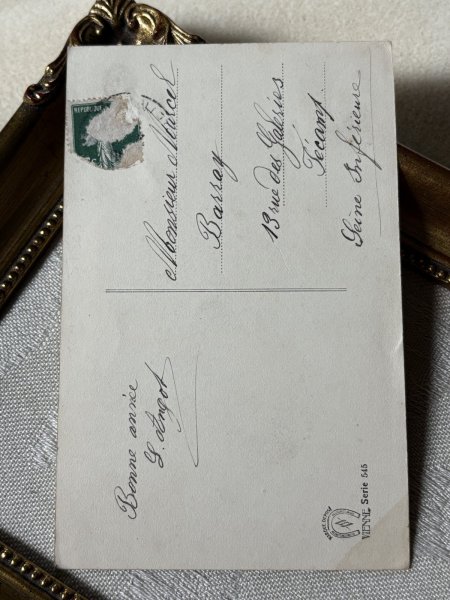 Bonne année
L. Angot
Monsieur Marcel
Barray
13 rue des Galeries
Fécamp
Seine Inférieure
VIENNE Serie 545